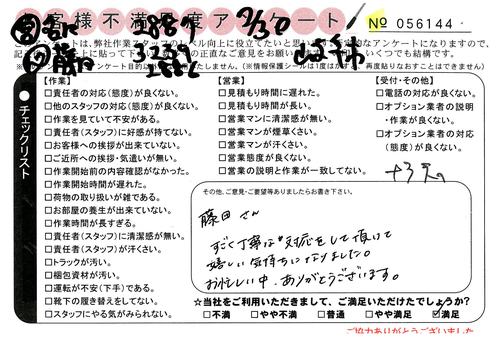 お客様不満足度アンケート
№ 056144
このアンケートは、弊社作業スタッフのレベル向上に役立てたいと思います
正直なご意見をお願い
【作業】
□責任者の対応(態度)が良くない。
□他のスタッフの対応(態度)が良くない。
□作業を見ていて不安がある。
□責任者(スタッフ)に好感が持てない。
□お客様への挨拶が出来ていない。
□ご近所への挨拶・気遣いが無い。
□作業開始前の内容確認がなかった。
□作業開始時間が遅れた。
□荷物の取り扱いが雑である。
□お部屋の養生が出来ていない。
□作業時間が長すぎる。
□責任者(スタッフ)に清潔感が無い。
□責任者(スタッフ)が汗くさい。
□トラックが汚い。
□梱包資材が汚い。
□運転が不安(下手)である。
□靴下の履き替えをしてない。
□スタッフにやる気がみられない。
チェックリスト
【営業】
□見積もり時間に遅れた。
□見積もり時間が長い。
□営業マンに清潔感が無い。
□営業マンが煙草くさい。
□営業マンが汗くさい。
□営業態度が良くない。
□営業の説明と作業が一致してない。
【受付・その他】
□電話の対応が良くない。
□オプション業者の説明
・作業が良くない。
□オプション業者の対応
(態度)が良くない。
その他、ご意見・ご要望等ありましたらお書き下さい。
藤田さん
すごく丁寧な対応をして頂けて
嬉しい気持ちになりました。
お忙しい中、ありがとうございます。
☆当社をご利用いただきまして、ご満足いただけたでしょうか?
□不満 □やや不満 □普通 □やや満足 ☑満足
ご協力ありがとうございました